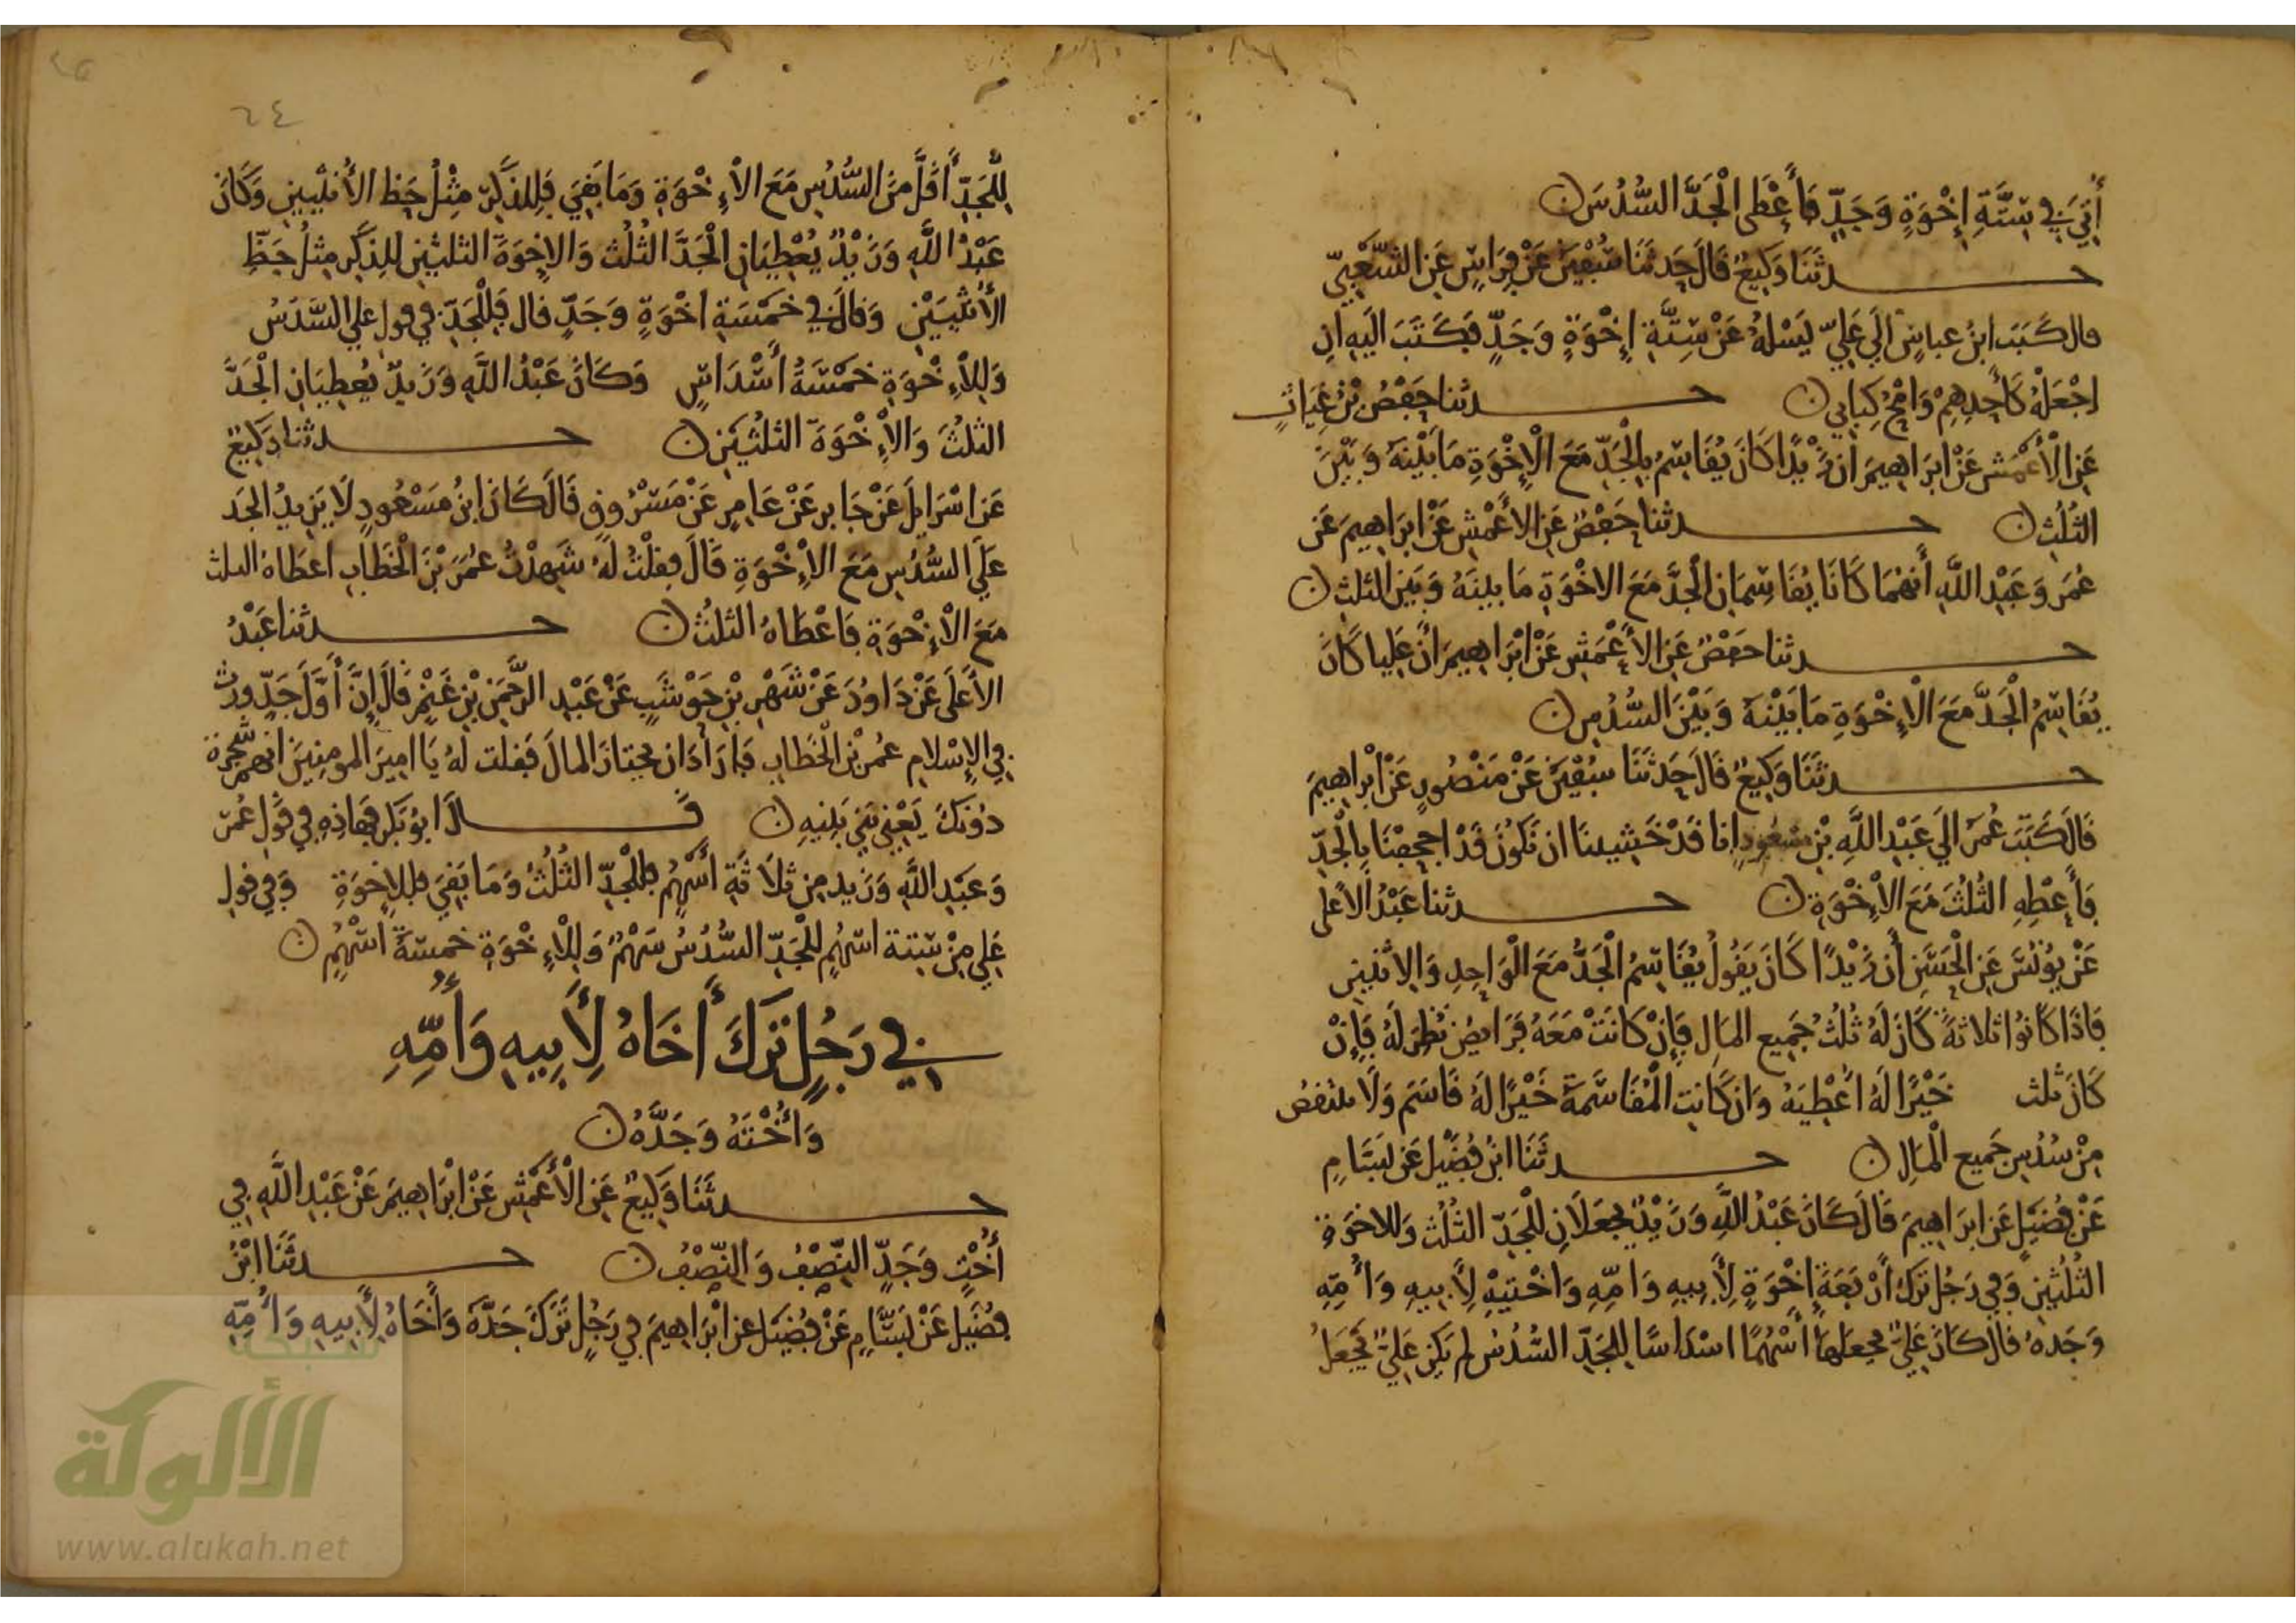 أُتِيَ فِي سِتَّةِ إِخْوَةٍ وَجَدٍّ فَأَعْطَى الْجَدَّ السُّدُسَ ن
حدثَنَا وَكِيعٌ قَالَ حَدثَنَا سُفْيَنُ عَنْ فِرَاسٍ عَنِ الشَّعْبِيِّ
قال كَتَبَ ابْنُ عباسٍ إلَى عَلِيٍّ يَسْلُهُ عَنْ سِتَّةِ إِخْوَةٍ وَجَدٍّ فَكَتَبَ الَيْهِ انِ
اجْعَلْهُ كَأَحَدِهِمْ وَامْحُ كِتَابِي ن حدثنا حَفْصُ بْنُ غِيَاثٍ
عَنِ الْأَعْمَشِ عَنْ ابرَاهِيمَ ان زَيْدًا كَانَ يُقَاسِمُ بِالْجَدِّ مَعَ الْإِخْوَةِ مَا بَيْنَهُ وَبَيْنَ
الثُّلُثِ ن حدثنا حَفْصٌ عَنِ الأَعْمَشِ عَنْ ابرَاهِيمَ عَن
عُمَرَ وَعَبْدِ اللَّهِ أَنهُمَا كَانَا يُقَاسِمَانِ الْجَدَّ مَعَ الاخْوَةِ مَا بينَهُ وَبَيْنَ الثلثِ ن
حدثنا حفْصٌ عَنِ الأَعْمَشِ عَنْ ابْرَاهِيمَ انَّ عَلِيا كَانَ
يُقَاسِمُ الْجَدَّ مَعَ الْإِخْوَةِ مَا بَيْنَهُ وَبَيْنَ السُّدُسِ ن
حدثَنَا وَكِيعٌ قَالَ حَدثَنَا سُفْيَنُ عَنْ مَنْصُورٍ عَنْ ابْرَاهِيمَ
قَالَ كَتَبَ عُمَرُ الَى عَبْدِ اللَّهِ بْنِ مسْعُودٍ انا قَدْ خَشِينَا ان نَكُونَ قَدْ اجحفْنَا بِالْجَدِّ
فَأَعْطِهِ الثُّلُثَ مَعَ الْإِخْوَةِ ن حدثنا عَبْدُ الأَعلى
عَنْ يُونُسَ عَنِ الْحَسَنِ أَن زَيْدًا كَانَ يَقُولُ يُقَاسِمُ الْجَدُّ مَعَ الْوَاحِدِ وَالِاثنَينِ
فَاذَا كَانُوا ثلاثةً كَانَ لَهُ ثُلُثُ جَمِيعِ المَالِ فَإِنْ كَانَتْ مَعَهُ فَرَايضُ نُظِرَ لَهُ فَإِنْ
كَانَ ثلث خَيْرًا لَهُ اعْطِيَهُ وَان كَانَتِ الْمُقَاسَمَةُ خَيْرًا لَهُ قَاسَمَ وَلَا ينْتَقصُ
مِنْ سُدُسِ جَمِيعِ الْمَالِ ن حدثَنَا ابْنُ فُضَيْل عَن بَسَّامٍ
عَنْ فُضَيْلٍ عَن ابرَاهِيمَ قَالَ كَانَ عَبْدُ اللَّهِ وَزَيْدٌ يجعَلَانِ لِلْجَدِّ الثُلُثَ وَللاخوَةِ
الثُلُثَيْنِ وَفِي رَجُلٍ تَرَكَ أَرْبَعَةَ إِخْوَةٍ لِأَبِيهِ وَامِّهِ وَاخْتَيْهِ لِأَبِيهِ وَأُمِّهِ
وَجَدهُ قال كَانَ عَلِيٌّ يجعلهَا أَسْهُمًا اسْدَاسًا لِلْجَدِّ السُّدُسُ لم يَكُن عَلِيٌّ يَجْعَلُ
٦٤
لِلْجَدِّ أَقَلَّ مِنَ السُّدُسِ مَعَ الْإِخْوَةِ وَمَا بَقِيَ فَلِلذَّكَرِ مِثْلُ حَظِ الأُنثَيينِ وَكَانَ
عَبْدُ اللَّهِ وَزَيْدٌ يُعْطِيَانِ الْجَدَّ الثُلُثَ وَالاخوَةَ الثلثيْنِ للِذكَرِ مِثلُ حَظِّ
الأُنْثَيَيْنِ وَقالَ فِي خَمْسَةِ اخْوَةٍ وَجَدٍّ قال فَلِلْجَدِّ فِي قول علي السُّدُسُ
وَلِلْإِخْوَةِ خَمْسَةُ أَسْدَاسٍ وَكَانَ عَبْدُ اللَّهِ وَزَيدٌ يُعطِيَانِ الْجَدَّ
الثلُثَ وَالْإِخْوَةَ الثلثَينِ ن حدثنا وَكِيعٌ
عَن اسْرَايلَ عَنْ جَابرٍ عَنْ عَامِرٍ عَنْ مَسْرُوقٍ قَالَ كَانَ ابْنُ مَسْعُودٍ لَا يَزِيدُ الجَد
عَلَى السُّدُسِ مَعَ الْإِخْوَةِ قَالَ فقلْتُ لَهُ شَهِدْتُ عُمَرَ بْنَ الْخَطابِ اعطَاهُ الثلث
مَعَ الْإِخْوَةِ فَاعْطَاهُ الثلُثَ ن حدثنا عَبْدُ
الأَعلَى عَنْ دَاودَ عَنْ شَهْرِ بْنِ حَوْشَبٍ عَنْ عَبْدِ الرَّحْمَنِ بْنِ غَنْمٍ قَالَ إِنَّ أَوَّلَ جَدٍّ ورث
فِي الإِسْلام عُمرُ بْنُ الْخَطابِ فَارَادَ ان يحتازَ المالَ فَقلت لَهُ يَا امِيرَ المومِنِينَ انهم شَجَرة
دُونَكَ يَعْنِي بَنِي بَنِيهِ ن قالَ ابُو بَكْرٍ فهَاذِهِ فِي قَوْلِ عُمَرَ
وَعَبْدِ اللَّهِ وَزَيد مِن ثلَاثَةِ أَسْهُمٍ فَلِلْجَدِّ الثُلُثُ وَمَا بَقِيَ فللاِخوَةِ وَفِي قولِ
عَلِي مِنْ سِتة اسْهُمٍ لِلْجَدِّ السُّدُسُ سَهْمٌ وَلِلْإِخْوَةِ خمسَةُ اسْهُمٍ ن
فِي رَجُلٍ تَرَكَ أَخَاهُ لِأَبِيهِ وَأُمِّهِ
وَأُخْتَهُ وَجَدَّهُ ن
حدثَنَا وَكِيعٌ عَنِ الْأَعْمَشِ عَنْ ابْرَاهِيمَ عَنْ عَبْدِ اللَّهِ فِي
أُخْتٍ وَجَدٍّ النِّصْفُ وَالنِّصْفُ ن حدثَنَا ابْنُ
فُضَيْل عَنْ بَسَّامٍ عَنْ فُضَيْل عن ابْرَاهِيمَ فِي رَجُلٍ تَرَكَ جَدَّهُ وَأَخَاهُ لِأَبِيهِ وَأُمِّهِ
شبكة
الألوكة
www.alukah.net